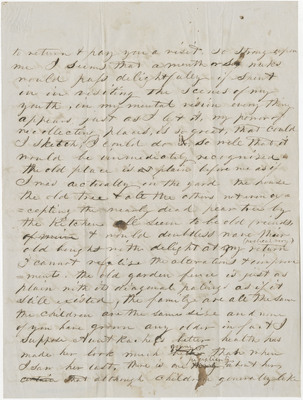 to return & pay you a visit so strong upon
me I seems that a month or so weeks
would pass delightfully if I went
on in visiting the scenes of my
youth, in my mental vision every thing
appears just as I left it, my power of
recollecting places, is so great, that could
I sketch, I could do it so well that it
would be immediately recognised &
the old place is as plain before me as if
I was actually in the yard the house
the old tree & all the others not even ex-
cepting the nearly dead pear tree by
the Kitchen all seem to be old friends
& would doubtless wave their
old boughs with delight at my return
I cannot realise the alterations & improve-
-ments. the old garden fence is just as
plain with its diagonal palings as if it
still existed, the family are all the same
the children are the same size and none
of you have grown any older in fact I
Suppose Aunt Rachel's better health has
made her look much than when
I saw her last, there is one about her
that although children generally like